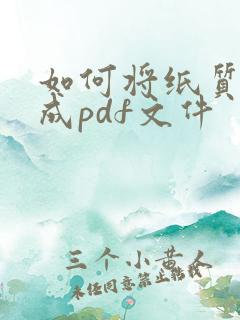 如何将纸质
成pdf文件
三个小黄人
未经同意禁止转载